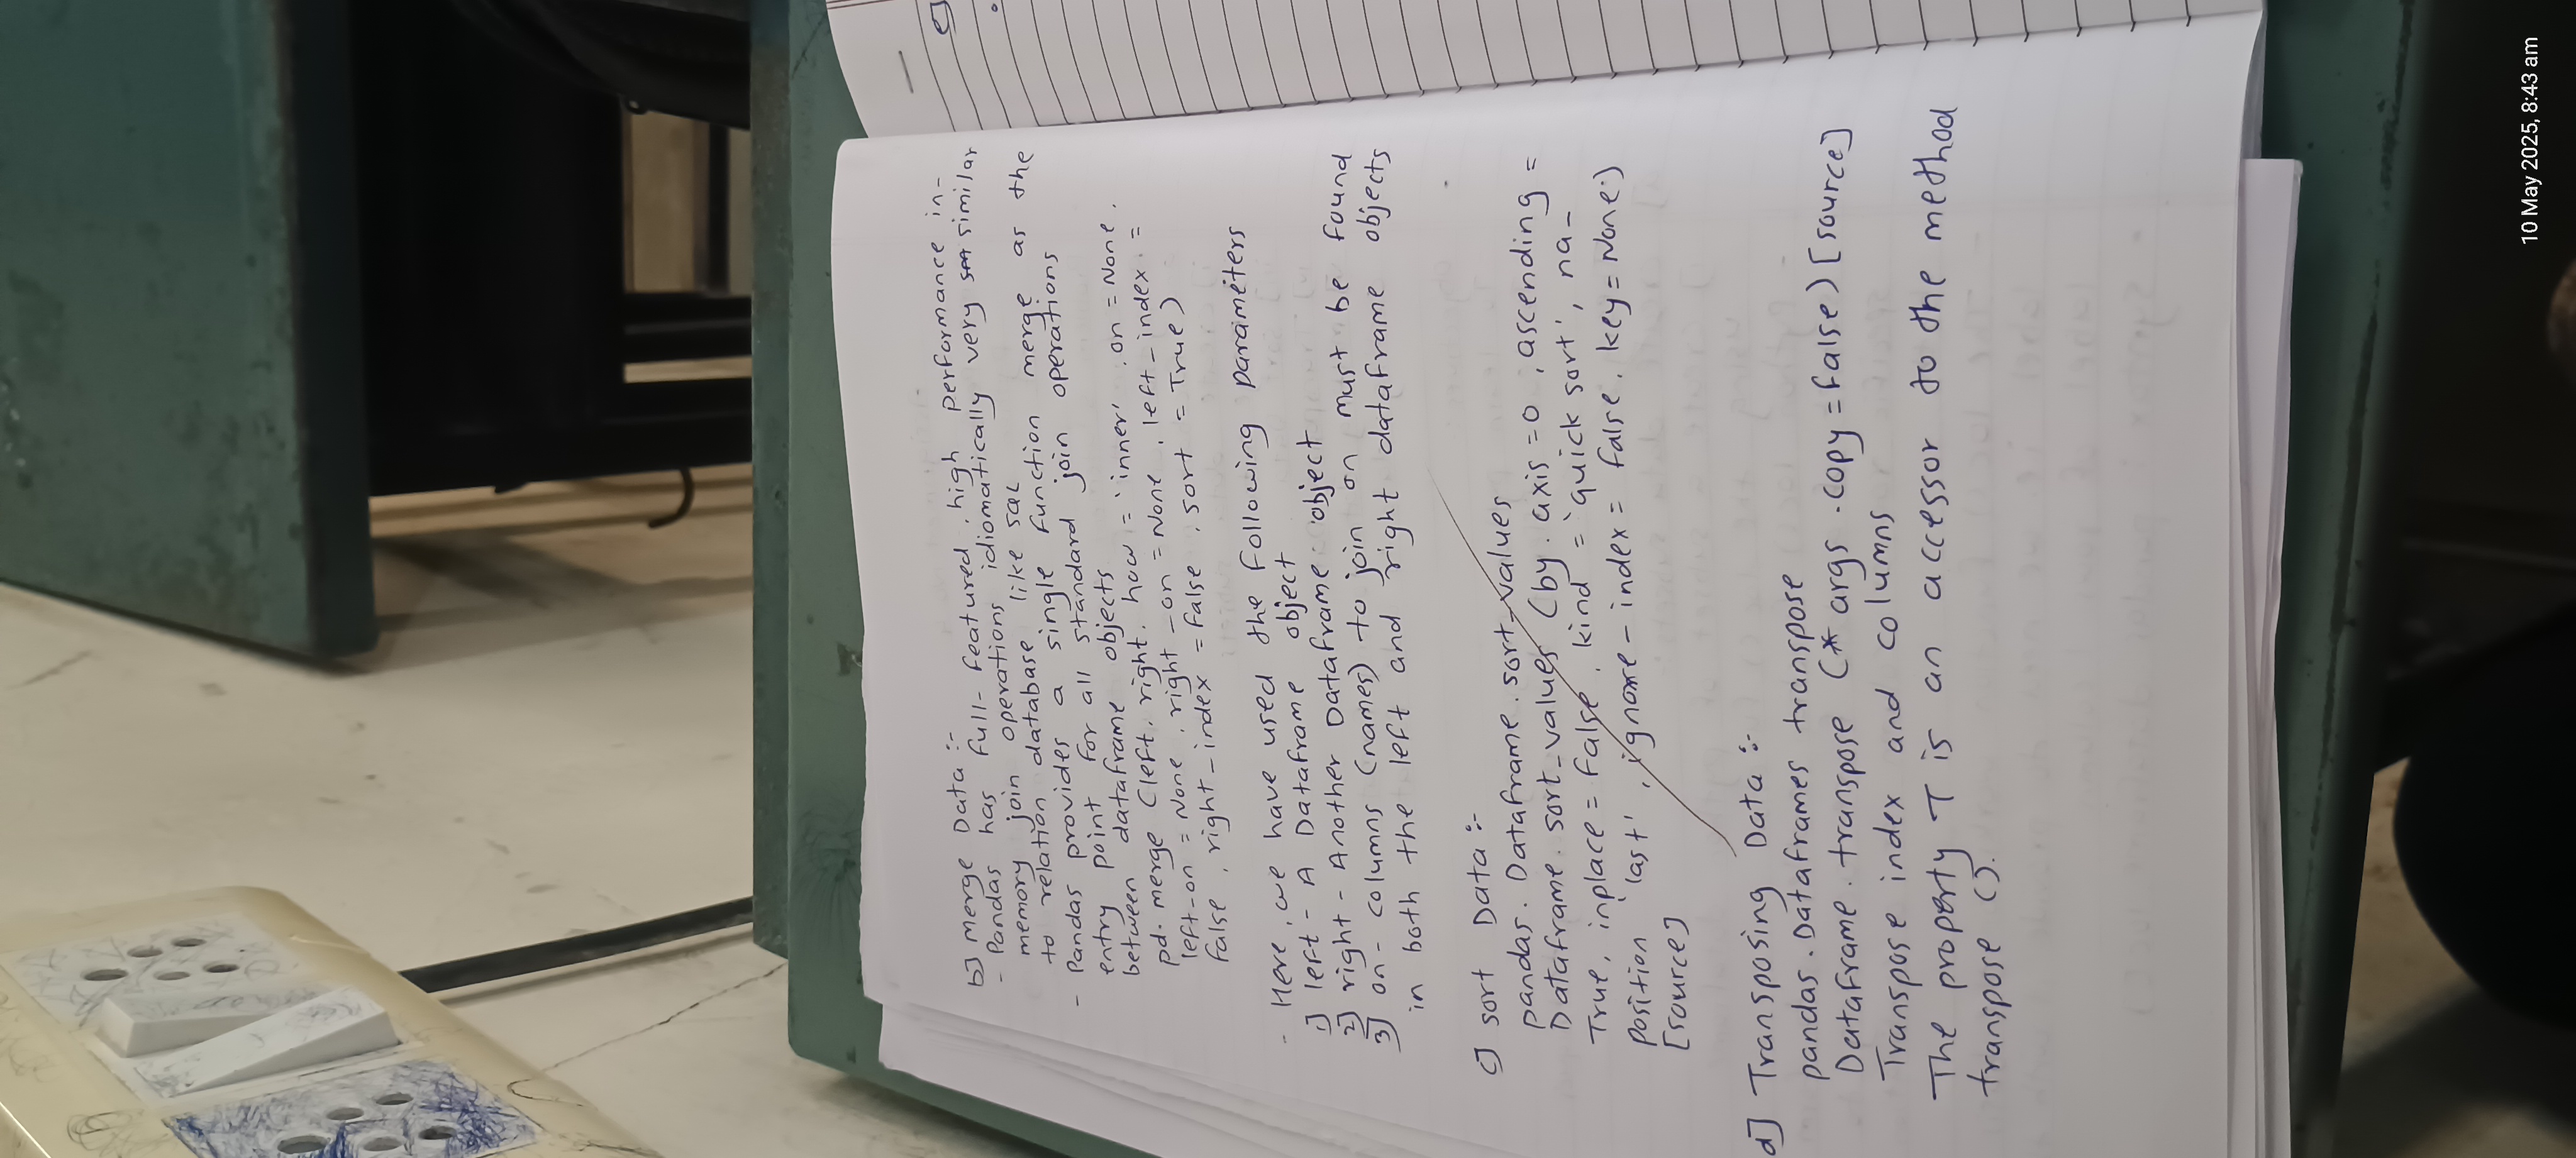 b] Merge Data :-
- Pandas has full-featured, high performance in-
memory join operations idiomatically very similar
to relation database like SQL
- Pandas provides a single function merge as the
entry point for all standard join operations
between dataframe objects
pd. merge (left, right, how = 'inner', on = None,
left-on = None, right-on = None, left-index =
false, right-index = false, sort = True)
- Here, we have used the following parameters
1] left - A Dataframe object
2] right - Another Dataframe object
3] on - columns (names) to join on must be found
in both the left and right dataframe objects
c] sort Data :-
pandas. Dataframe. sort_values
Dataframe. sort_values (by. axis = 0, ascending =
True, inplace = false, kind = 'quick sort', na-
position 'last', ignore-index = false, key = None.)
[source]
d] Transposing Data :-
pandas. Dataframes transpose
Dataframe. transpose (* args .copy = false) [source]
Transpose index and columns
The property T is an accessor to the method
transpose ().
e]
10 May 2025, 8:43 am